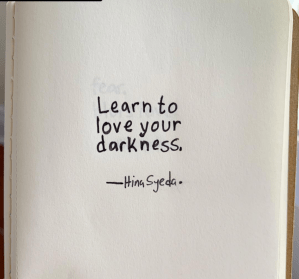 Learn to
love your
darkness.
—Hina Syeda.